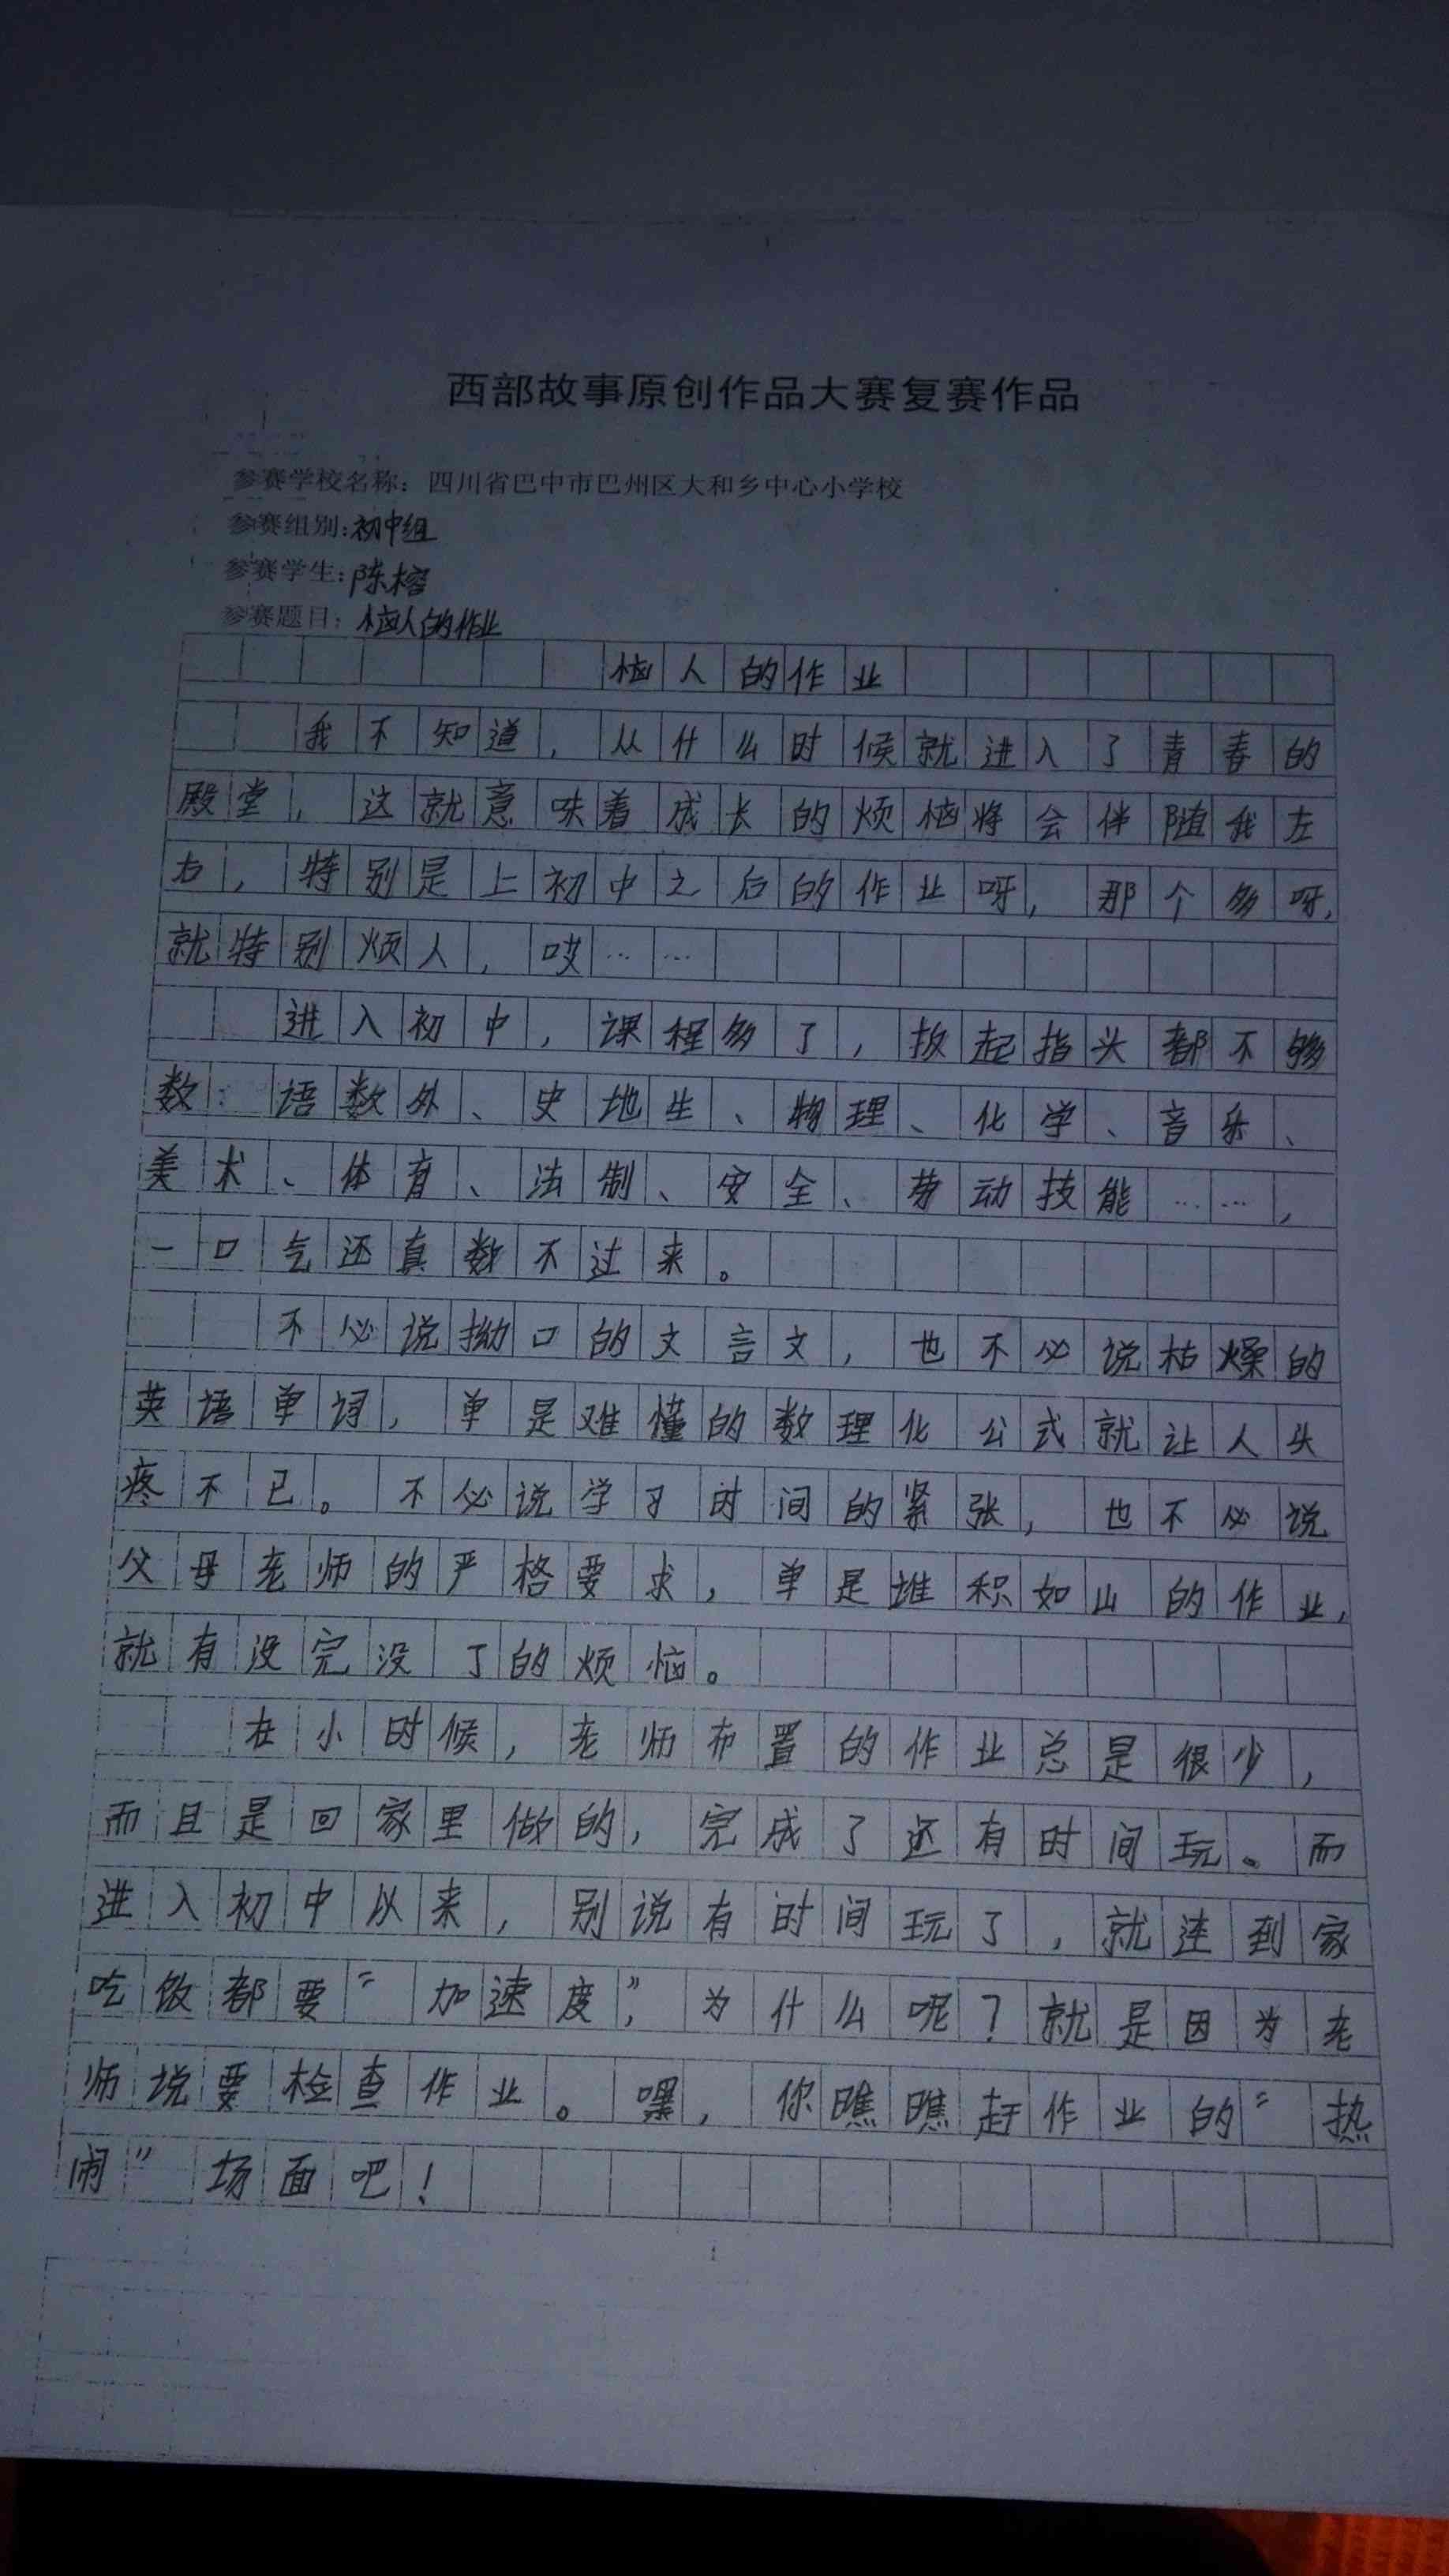 西部故事原创作品大赛复赛作品
参赛学校名称：四川省巴中市巴州区大和乡中心小学校
参赛组别：初中组
参赛学生：陈榕
参赛题目：恼人的作业
恼人的作业
我不知道，从什么时候就进入了青春的
殿堂，这就意味着成长的烦恼将会伴随我左
右，特别是上初中之后的作业呀，那个多呀，
就特别烦人，哎……
进入初中，课程多了，扳起指头都不够
数：语数外、史地生、物理、化学、音乐、
美术、体育、法制、安全、劳动技能……，
一口气还真数不过来。
不必说拗口的文言文，也不必说枯燥的
英语单词，单是难懂的数理化公式就让人头
疼不已。不必说学习时间的紧张，也不必说
父母老师的严格要求，单是堆积如山的作业，
就有没完没了的烦恼。
在小时候，老师布置的作业总是很少，
而且是回家里做的，完成了还有时间玩。而
进入初中以来，别说有时间玩了，就连到家
吃饭都要“加速度”，为什么呢？就是因为老
师说要检查作业。嘿，你瞧瞧赶作业的“热
闹”场面吧！
1